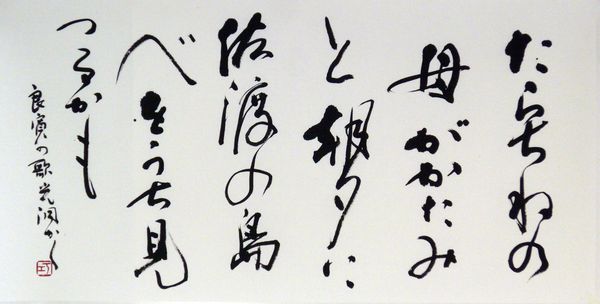 たらちねの
母がかたみ
と朝夕に
佐渡の島
べをうち見
つるかも
良寛の歌